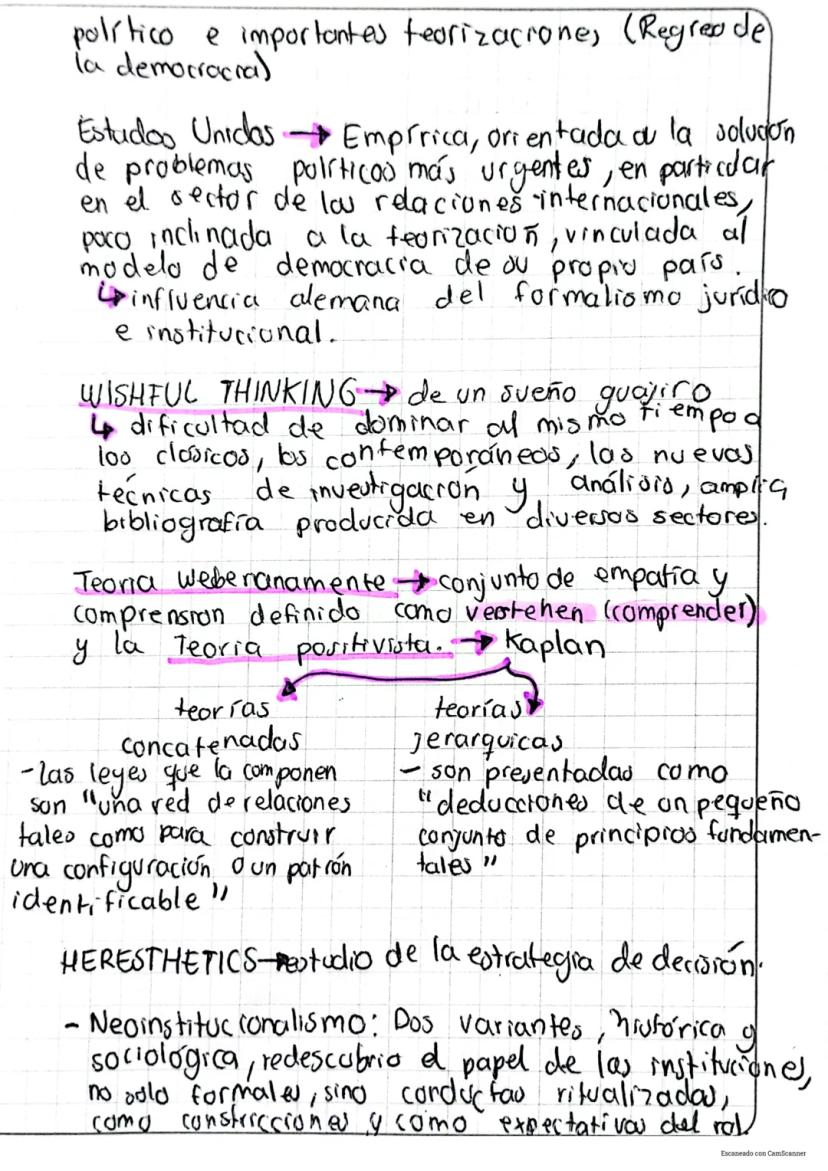 político e importantes teorizaciones (Regreso de
la democracia)
Estados Unidos → Empírica, orientada a la solución
de problemas políticos más urgentes, en particular
en el sector de las relaciones internacionales,
poco inclinada a la teorización, vinculada al
modelo de democracia de su propio país.
↳ influencia alemana del formalismo jurídico
e institucional.
WISHFUL THINKING → de un sueño guajiro
↳ dificultad de dominar al mismo tiempo a
los clásicos, los contemporáneos, las nuevas
técnicas de investigación y análisis, amplia
bibliografía producida en diversos sectores.
Teoria weberanamente → conjunto de empatía y
comprension definido como verstehen (comprender)
y la Teoria positivista. → Kaplan
teorías concatenadas
- las leyes que la componen
son "una red de relaciones
tales como para construir
una configuración o un patrón
identificable"
teorías jerarquicas
- son presentadas como
"deducciones de un pequeño
conjunto de principios fundamen-
tales"
HERESTHETICS → estudio de la estrategia de decisión.
- Neoinstitucionalismo: Dos variantes, histórica y
sociológica, redescubrio el papel de las instituciones,
no solo formales, sino conductas ritualizadas,
como constricciones y como expectativas del rol
Escaneado con CamScanner